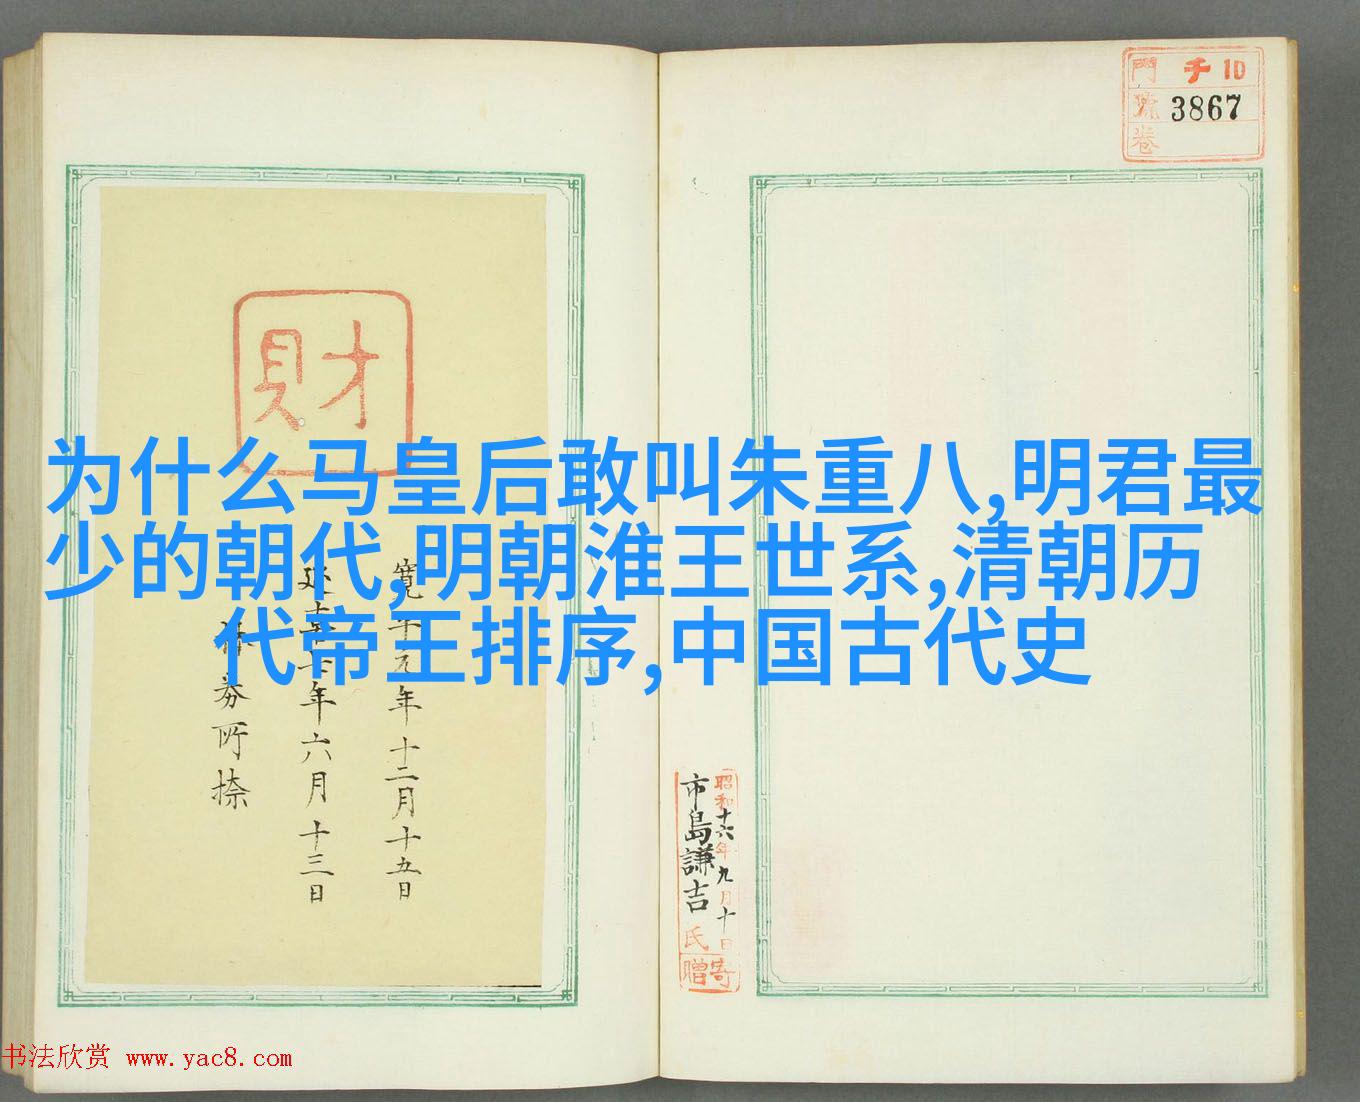 門 千 10
號 3867
卷
財
为什么马皇后敢叫朱重八,明君最
少的朝代,明朝淮王世系,清朝历
代帝王排序,中国古代史
寛平九年十二月十五日
延喜七年六月十三日
務所捺
昭和十六年九月十日
市島謙吉氏
寄贈
书法欣赏 www.yac8.com